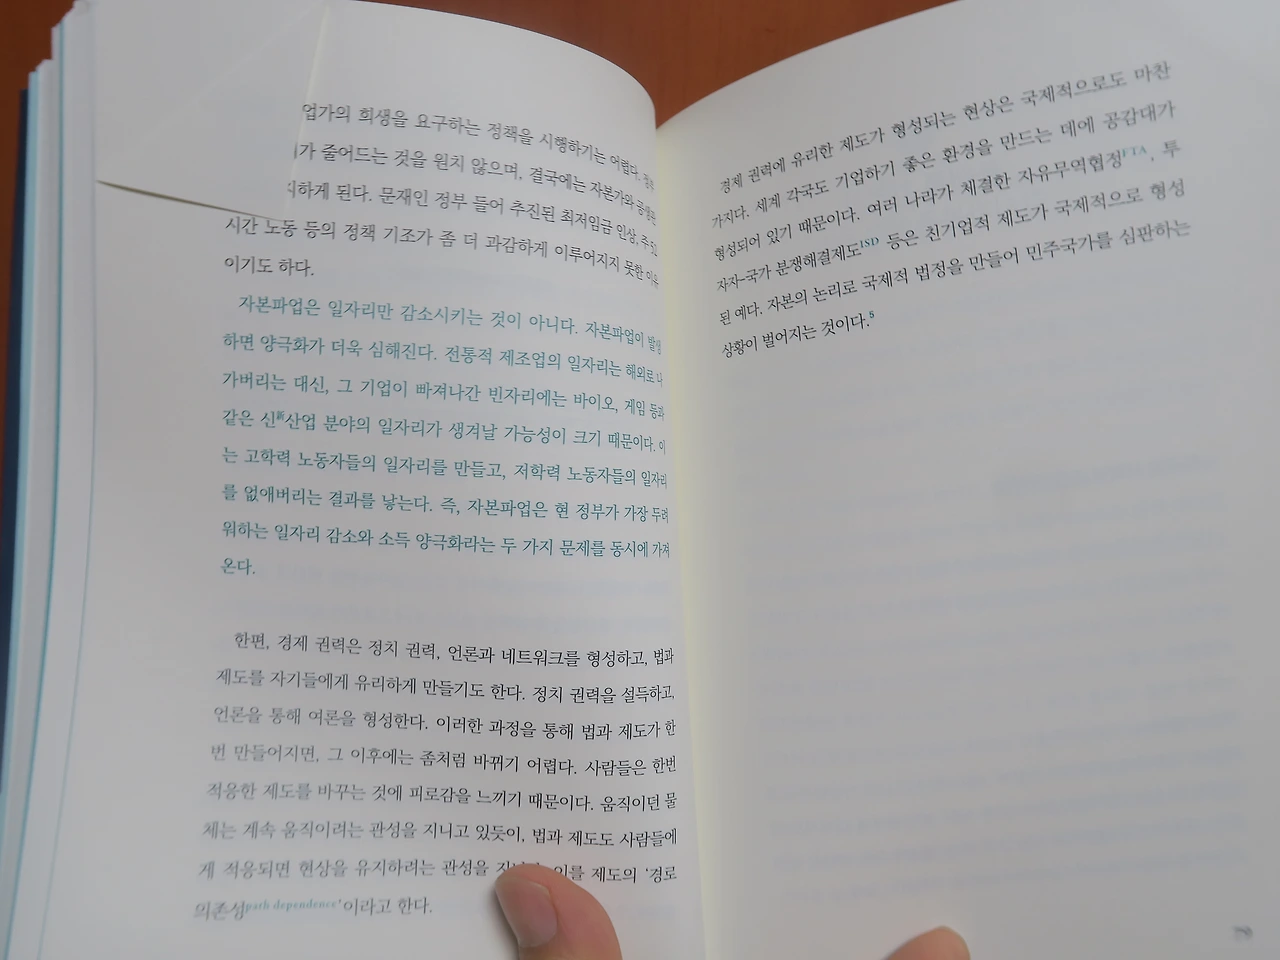 업가의 희생을 요구하는 정책을 시행하기는 어렵다.
가 줄어드는 것을 원치 않으며, 결국에는 자본가와
하게 된다. 문재인 정부 들어 추진된 최저임금 인상, 주 52
시간 노동 등의 정책 기조가 좀 더 과감하게 이루어지지 못한 이유
이기도 하다.
자본파업은 일자리만 감소시키는 것이 아니다. 자본파업이 발생
하면 양극화가 더욱 심해진다. 전통적 제조업의 일자리는 해외로 나
가버리는 대신, 그 기업이 빠져나간 빈자리에는 바이오, 게임 등과
같은 신新산업 분야의 일자리가 생겨날 가능성이 크기 때문이다. 이
는 고학력 노동자들의 일자리를 만들고, 저학력 노동자들의 일자리
를 없애버리는 결과를 낳는다. 즉, 자본파업은 현 정부가 가장 두려
워하는 일자리 감소와 소득 양극화라는 두 가지 문제를 동시에 가져
온다.
한편, 경제 권력은 정치 권력, 언론과 네트워크를 형성하고, 법과
제도를 자기들에게 유리하게 만들기도 한다. 정치 권력을 설득하고,
언론을 통해 여론을 형성한다. 이러한 과정을 통해 법과 제도가 한
번 만들어지면, 그 이후에는 좀처럼 바뀌기 어렵다. 사람들은 한번
적응한 제도를 바꾸는 것에 피로감을 느끼기 때문이다. 움직이던 물
체는 계속 움직이려는 관성을 지니고 있듯이, 법과 제도도 사람들에
게 적응되면 현상을 유지하려는 관성을 이를 제도의 ‘경로
의존성path dependence’이라고 한다.
경제 권력에 유리한 제도가 형성되는 현상은 국제적으로도 마찬
가지다. 세계 각국도 기업하기 좋은 환경을 만드는 데에 공감대가
형성되어 있기 때문이다. 여러 나라가 체결한 자유무역협정FTA, 투
자자-국가 분쟁해결제도ISD 등은 친기업적 제도가 국제적으로 형성
된 예다. 자본의 논리로 국제적 법정을 만들어 민주국가를 심판하는
상황이 벌어지는 것이다.5